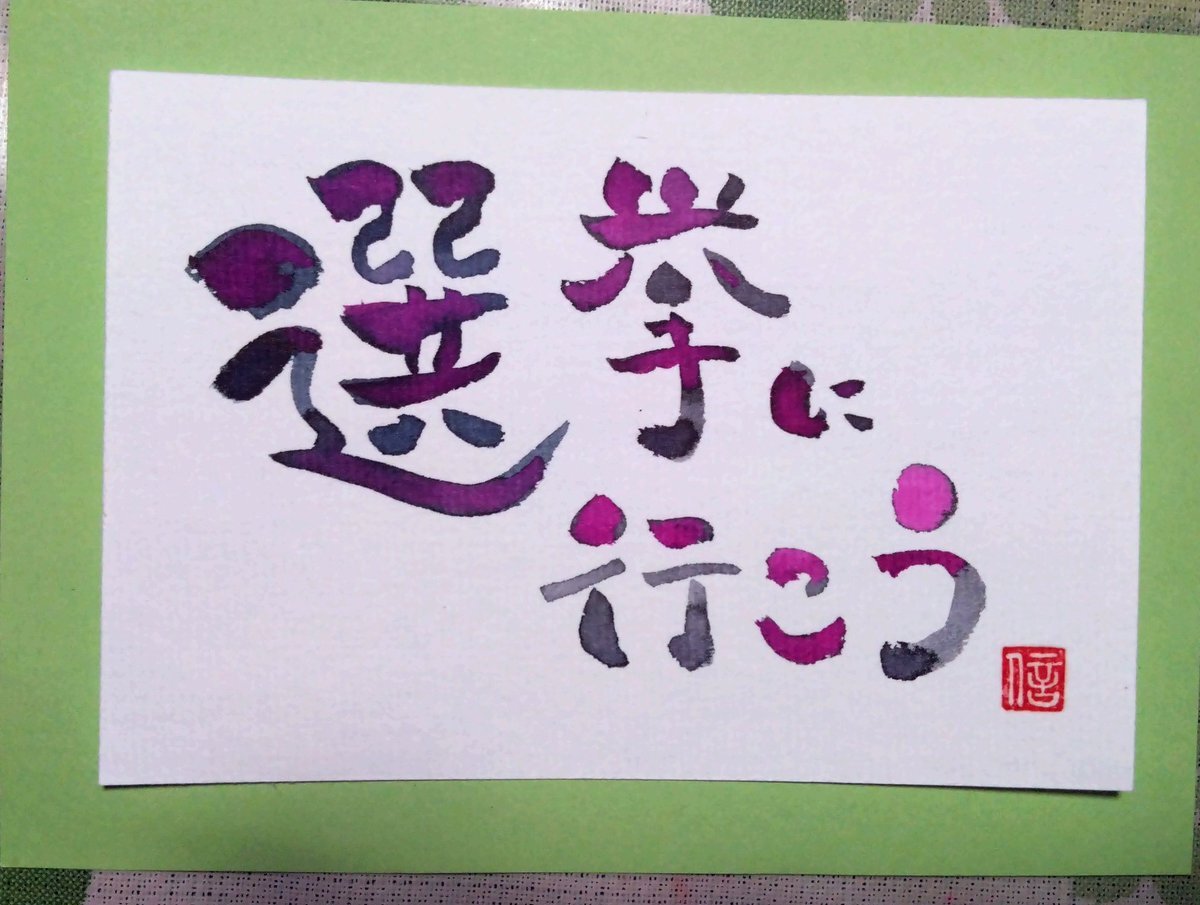 選挙に
行こう
信